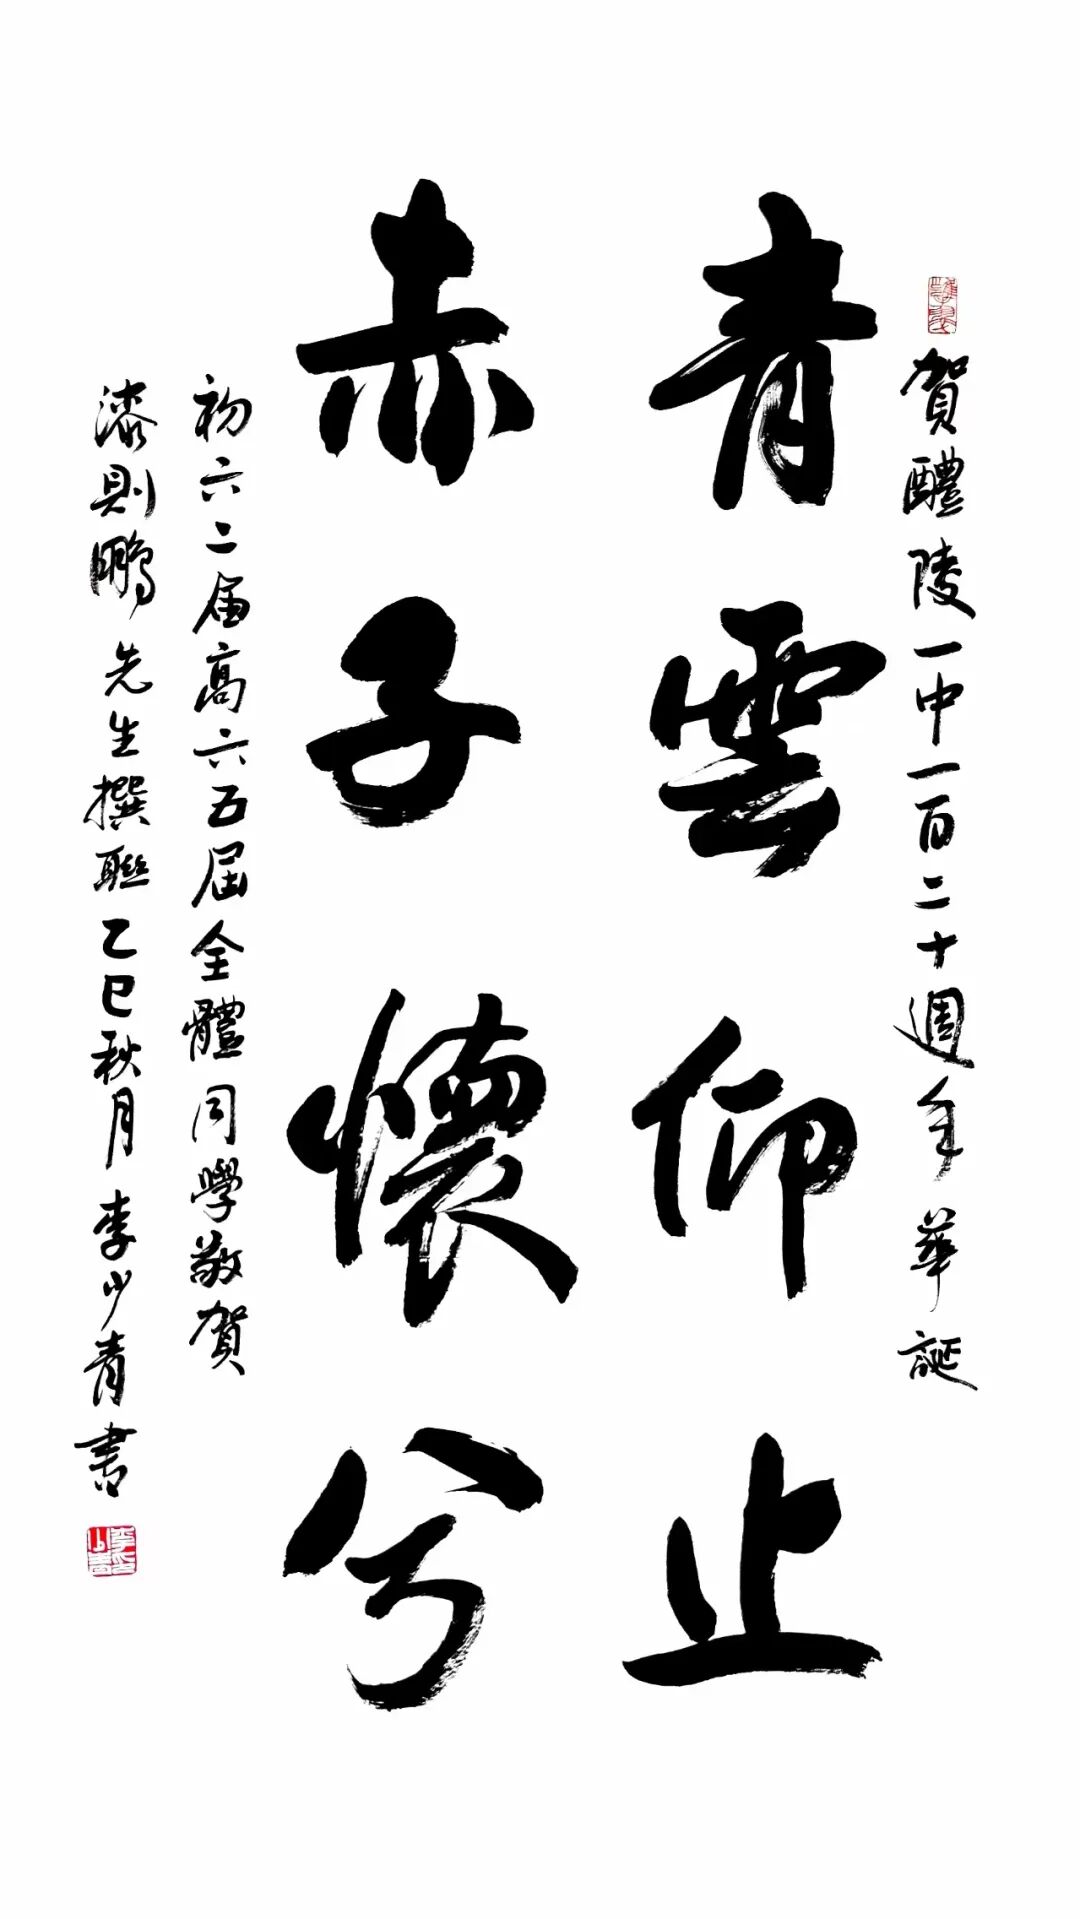 賀醴陵一中一百二十週年華誕
青雲仰止
赤子懷兮
初六二届高六五届全體同學敬賀
漆則鵬先生撰聯乙巳秋月李少青書